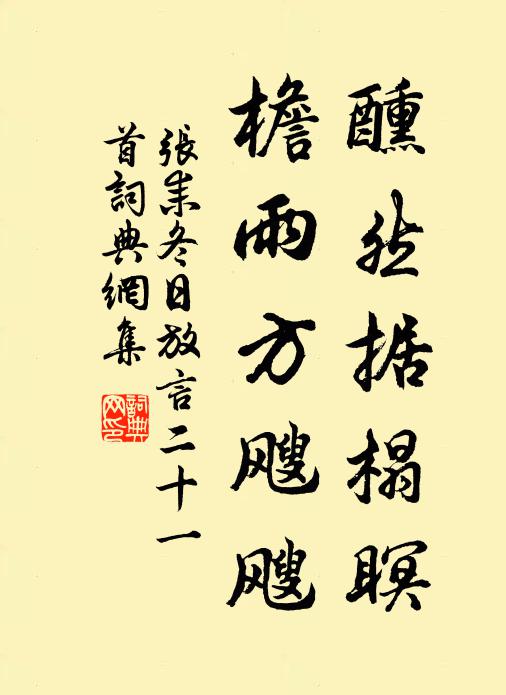 醺然据榻瞑
檐雨方飕飕
張耒冬日放言二十一
首詞典網集
詞典网印